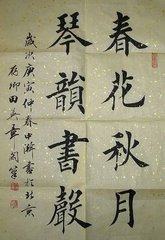 春花秋月
琴韻書聲
歲次庚寅仲春中澣書於北京
田英章